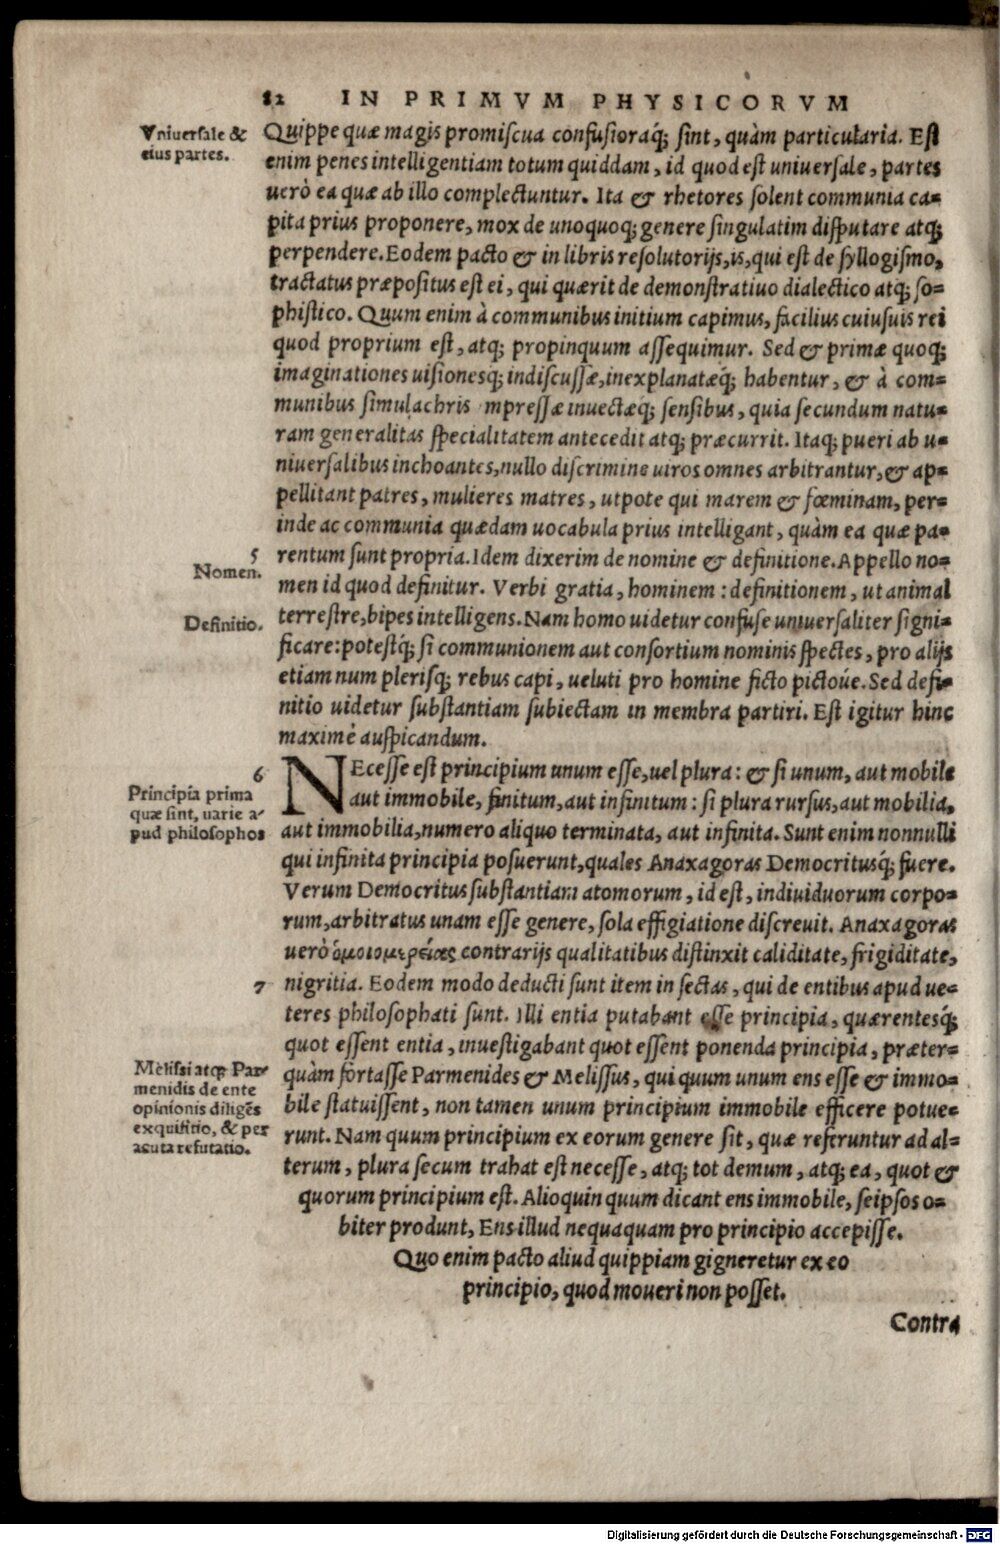 82 IN PRIMVM PHYSICORVM
Vniuersale &
eius partes.
Quippe quæ magis promiscua confusioraq́; sint, quàm particularia. Est
enim penes intelligentiam totum quiddam, id quod est uniuersale, partes
uerò ea quæ ab illo complectuntur. Ita & rhetores solent communia ca=
pita prius proponere, mox de unoquoq; genere singulatim disputare atq;
perpendere. Eodem pacto & in libris resolutorijs, is, qui est de syllogismo,
tractatus præpositus est ei, qui quærit de demonstratiuo dialectico atq; so=
phistico. Quum enim à communibus initium capimus, facilius cuiusuis rei
quod proprium est, atq; propinquum assequimur. Sed & primæ quoq;
imaginationes uisionesq; indiscussæ, inexplanatæq́; habentur, & à com=
munibus simulachris mpressæ inuectæq́; sensibus, quia secundum natu=
ram generalitas specialitatem antecedit atq; præcurrit. Itaq; pueri ab u=
niuersalibus inchoantes, nullo discrimine uiros omnes arbitrantur, & ap=
pellitant patres, mulieres matres, utpote qui marem & fœminam, per=
inde ac communia quædam uocabula prius intelligant, quàm ea quæ pa=
5
Nomen.
rentum sunt propria. Idem dixerim de nomine & definitione. Appello no=
men id quod definitur. Verbi gratia, hominem: definitionem, ut animal
Definitio.
terrestre, bipes intelligens. Nam homo uidetur confuse uniuersaliter signi=
ficare: potestq́; si communionem aut consortium nominis spectes, pro alijs
etiam num plerisq; rebus capi, ueluti pro homine ficto pictoúe. Sed defi=
nitio uidetur substantiam subiectam in membra partiri. Est igitur hinc
maximè auspicandum.
6
Principia prima
quæ sint, uarie a=
pud philosophos
NEcesse est principium unum esse, uel plura: & si unum, aut mobile
aut immobile, finitum, aut infinitum: si plura rursus, aut mobilia,
aut immobilia, numero aliquo terminata, aut infinita. Sunt enim nonnulli
qui infinita principia posuerunt, quales Anaxagoras Democritusq́; fuere.
Verum Democritus substantiam atomorum, id est, indiuiduorum corpo=
rum, arbitratus unam esse genere, sola effigiatione discreuit. Anaxagoras
uerò ὁμοιομερείας contrarijs qualitatibus distinxit caliditate, frigiditate,
7
nigritia. Eodem modo deducti sunt item in sectas, qui de entibus apud ue=
teres philosophati sunt. Illi entia putabant esse principia, quærentesq́;
quot essent entia, inuestigabant quot essent ponenda principia, præter=
Melissi atq; Par=
menidis de ente
opinionis diligēs
exquisitio, & per
acuta refutatio.
quàm fortasse Parmenides & Melissus, qui quum unum ens esse & immo=
bile statuissent, non tamen unum principium immobile efficere potue=
runt. Nam quum principium ex eorum genere sit, quæ referuntur ad al=
terum, plura secum trahat est necesse, atq; tot demum, atq; ea, quot &
quorum principium est. Alioquin quum dicant ens immobile, seipsos o=
biter produnt, Ens illud nequaquam pro principio accepisse.
Quo enim pacto aliud quippiam gigneretur ex eo
principio, quod moueri non posset.
Contra
Digitalisierung gefördert durch die Deutsche Forschungsgemeinschaft - DFG